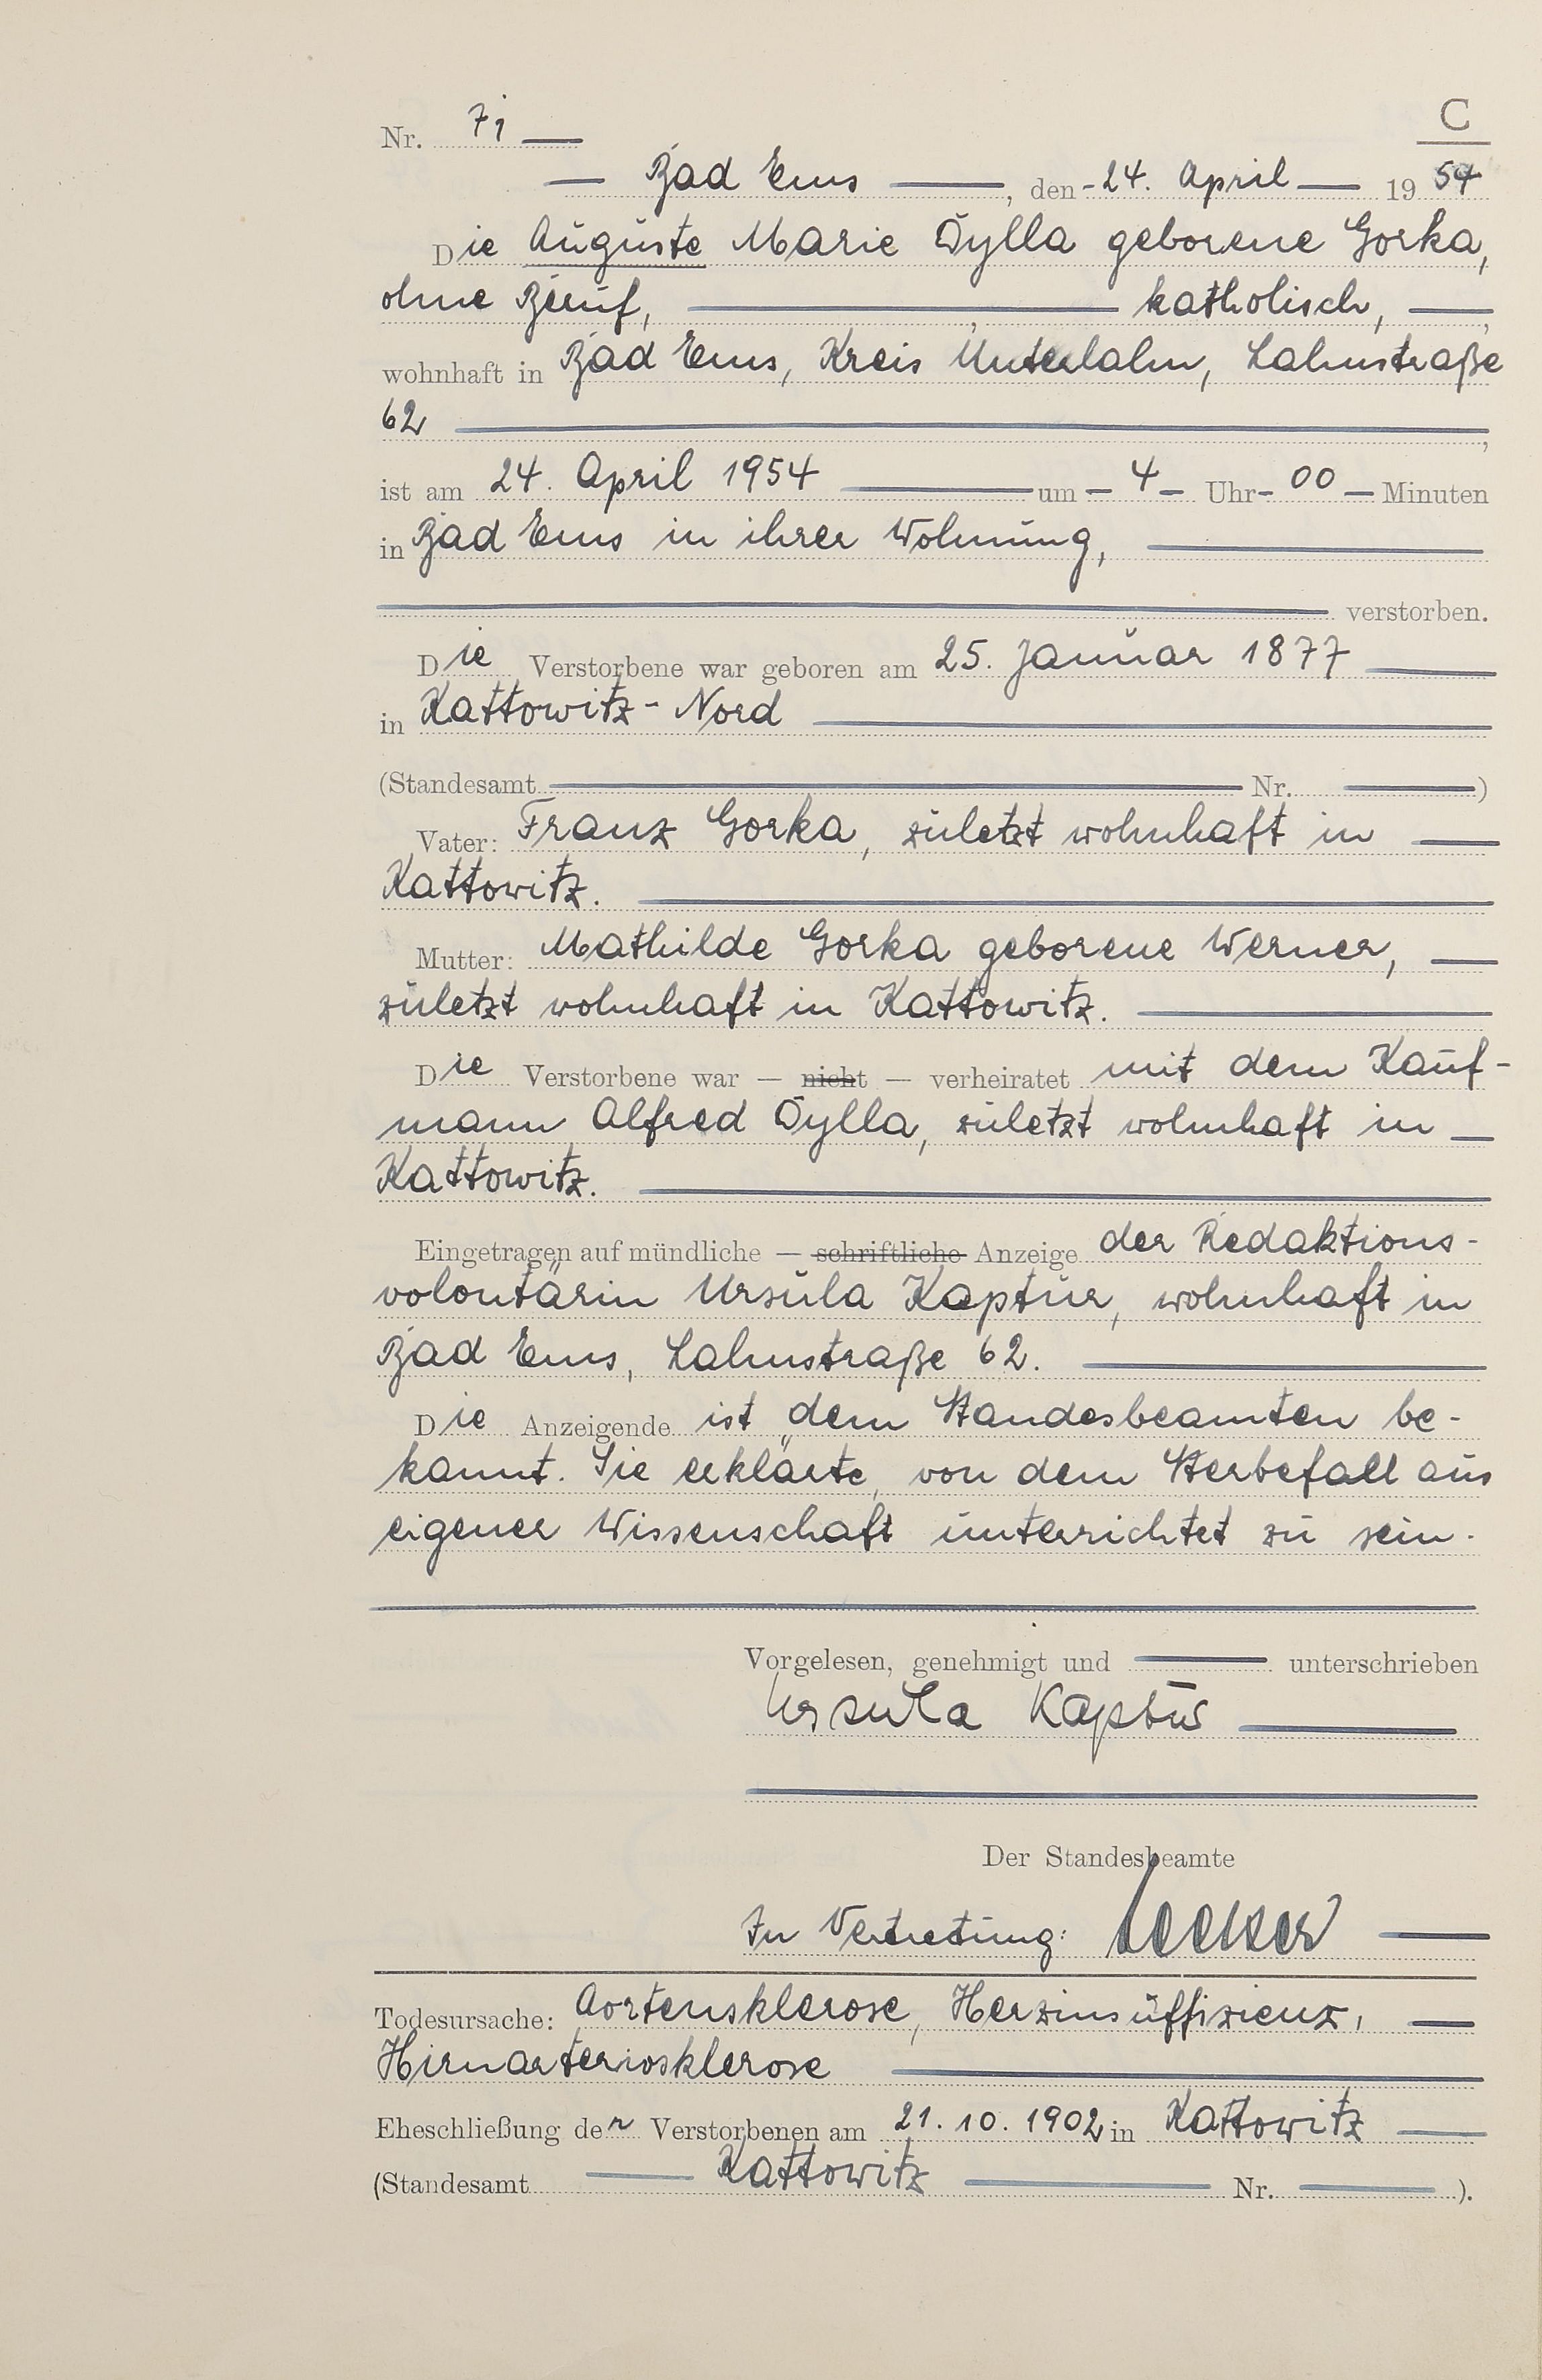 C
Nr. 71
Bad Ems, den 24. April 1954
Die Auguste Marie Dylla geborene Gorka,
ohne Beruf, katholisch,
wohnhaft in Bad Ems, Kreis Unterlahn, Lahnstraße
62
ist am 24. April 1954 um 4 Uhr 00 Minuten
in Bad Ems in ihrer Wohnung,
verstorben.
Die Verstorbene war geboren am 25. Januar 1877
in Kattowitz-Nord
(Standesamt Nr. )
Vater: Franz Gorka, zuletzt wohnhaft in
Kattowitz.
Mutter: Mathilde Gorka geborene Werner,
zuletzt wohnhaft in Kattowitz.
Die Verstorbene war — nicht — verheiratet mit dem Kauf-
mann Alfred Dylla, zuletzt wohnhaft in
Kattowitz.
Eingetragen auf mündliche — schriftliche Anzeige der Redaktions-
volontärin Ursula Kaptur, wohnhaft in
Bad Ems, Lahnstraße 62.
Die Anzeigende ist dem Standesbeamten be-
kannt. Sie erklärte, von dem Sterbefall aus
eigener Wissenschaft unterrichtet zu sein.
Vorgelesen, genehmigt und unterschrieben
Ursula Kaptur
Der Standesbeamte
In Vertretung:
Todesursache: Aortensklerose, Herzinsuffizienz,
Hirnarteriosklerose
Eheschließung der Verstorbenen am 21.10.1902 in Kattowitz
(Standesamt Kattowitz Nr. ).